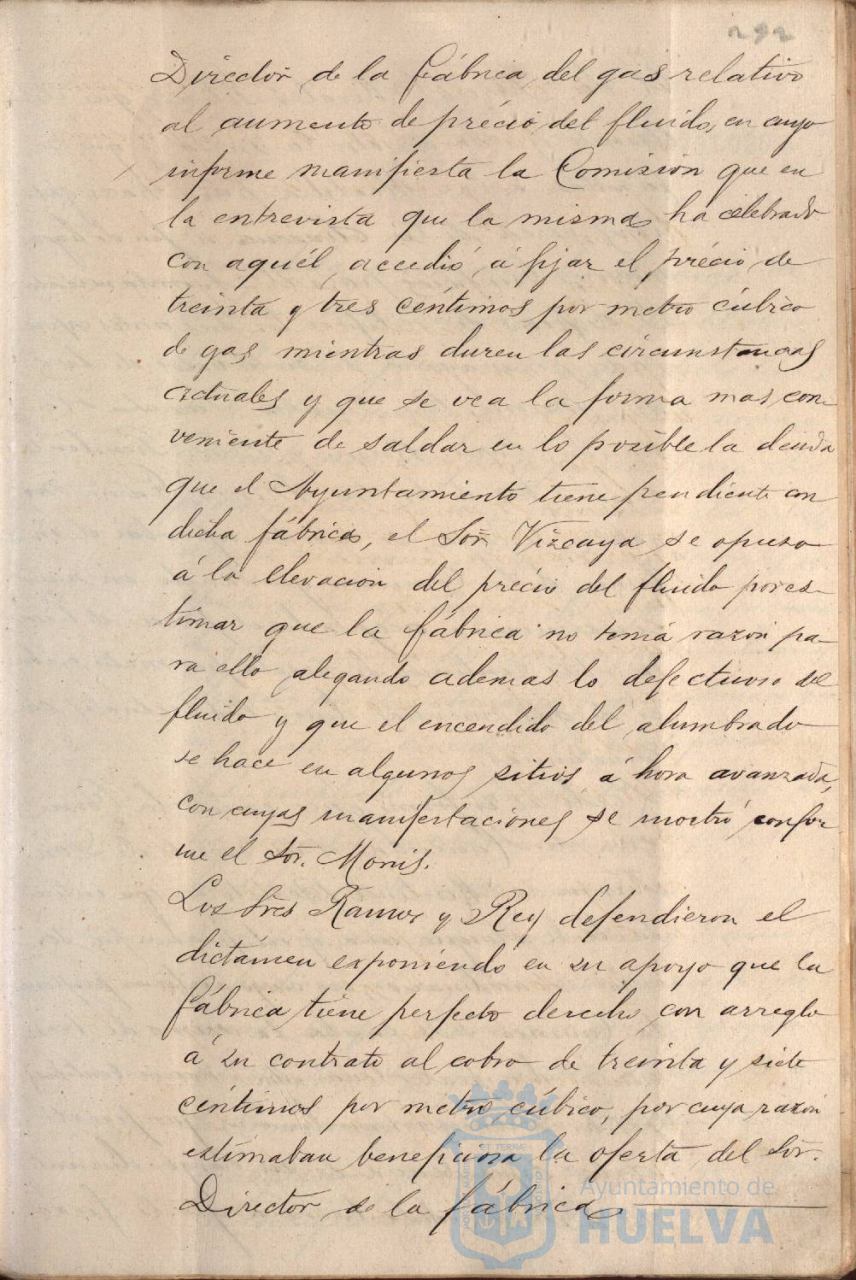 292
Director de la fábrica del gas relativo
al aumento de précio del fluido, en cuyo
informe manifiesta la Comisión que en
la entrevista que la misma ha celebrado
con aquél, accedió á fijar el précio de
treinta y tres céntimos por metro cúbico
de gas mientras duren las circunstancias
actuales y que se vea la forma mas con-
veniente de saldar en lo posible la deuda
que el Ayuntamiento tiene pendiente con
dicha fábrica, el Sor. Vizcaya se opuso
á la elevacion del précio del fluido por es-
timar que la fábrica no tenia razon pa-
ra ello alegando ademas lo defectuoso del
fluido y que el encendido del alumbrado
se hace en algunos sitios á hora avanzada,
con cuyas manifestaciones se mostró confor
me el Sor. Monis.
Los Sres Ramos y Rey defendieron el
dictámen exponiendo en su apoyo que la
fábrica tiene perfecto derecho con arreglo
á su contrato al cobro de treinta y siete
céntimos por metro cúbico, por cuya razon
estimaban beneficiosa la oferta del Sor.
Director de la fábrica
Ayuntamiento de
HUELVA